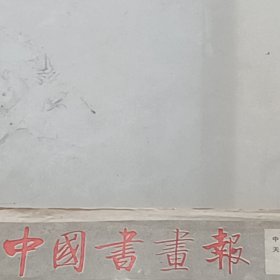 中國書畫報
中
天